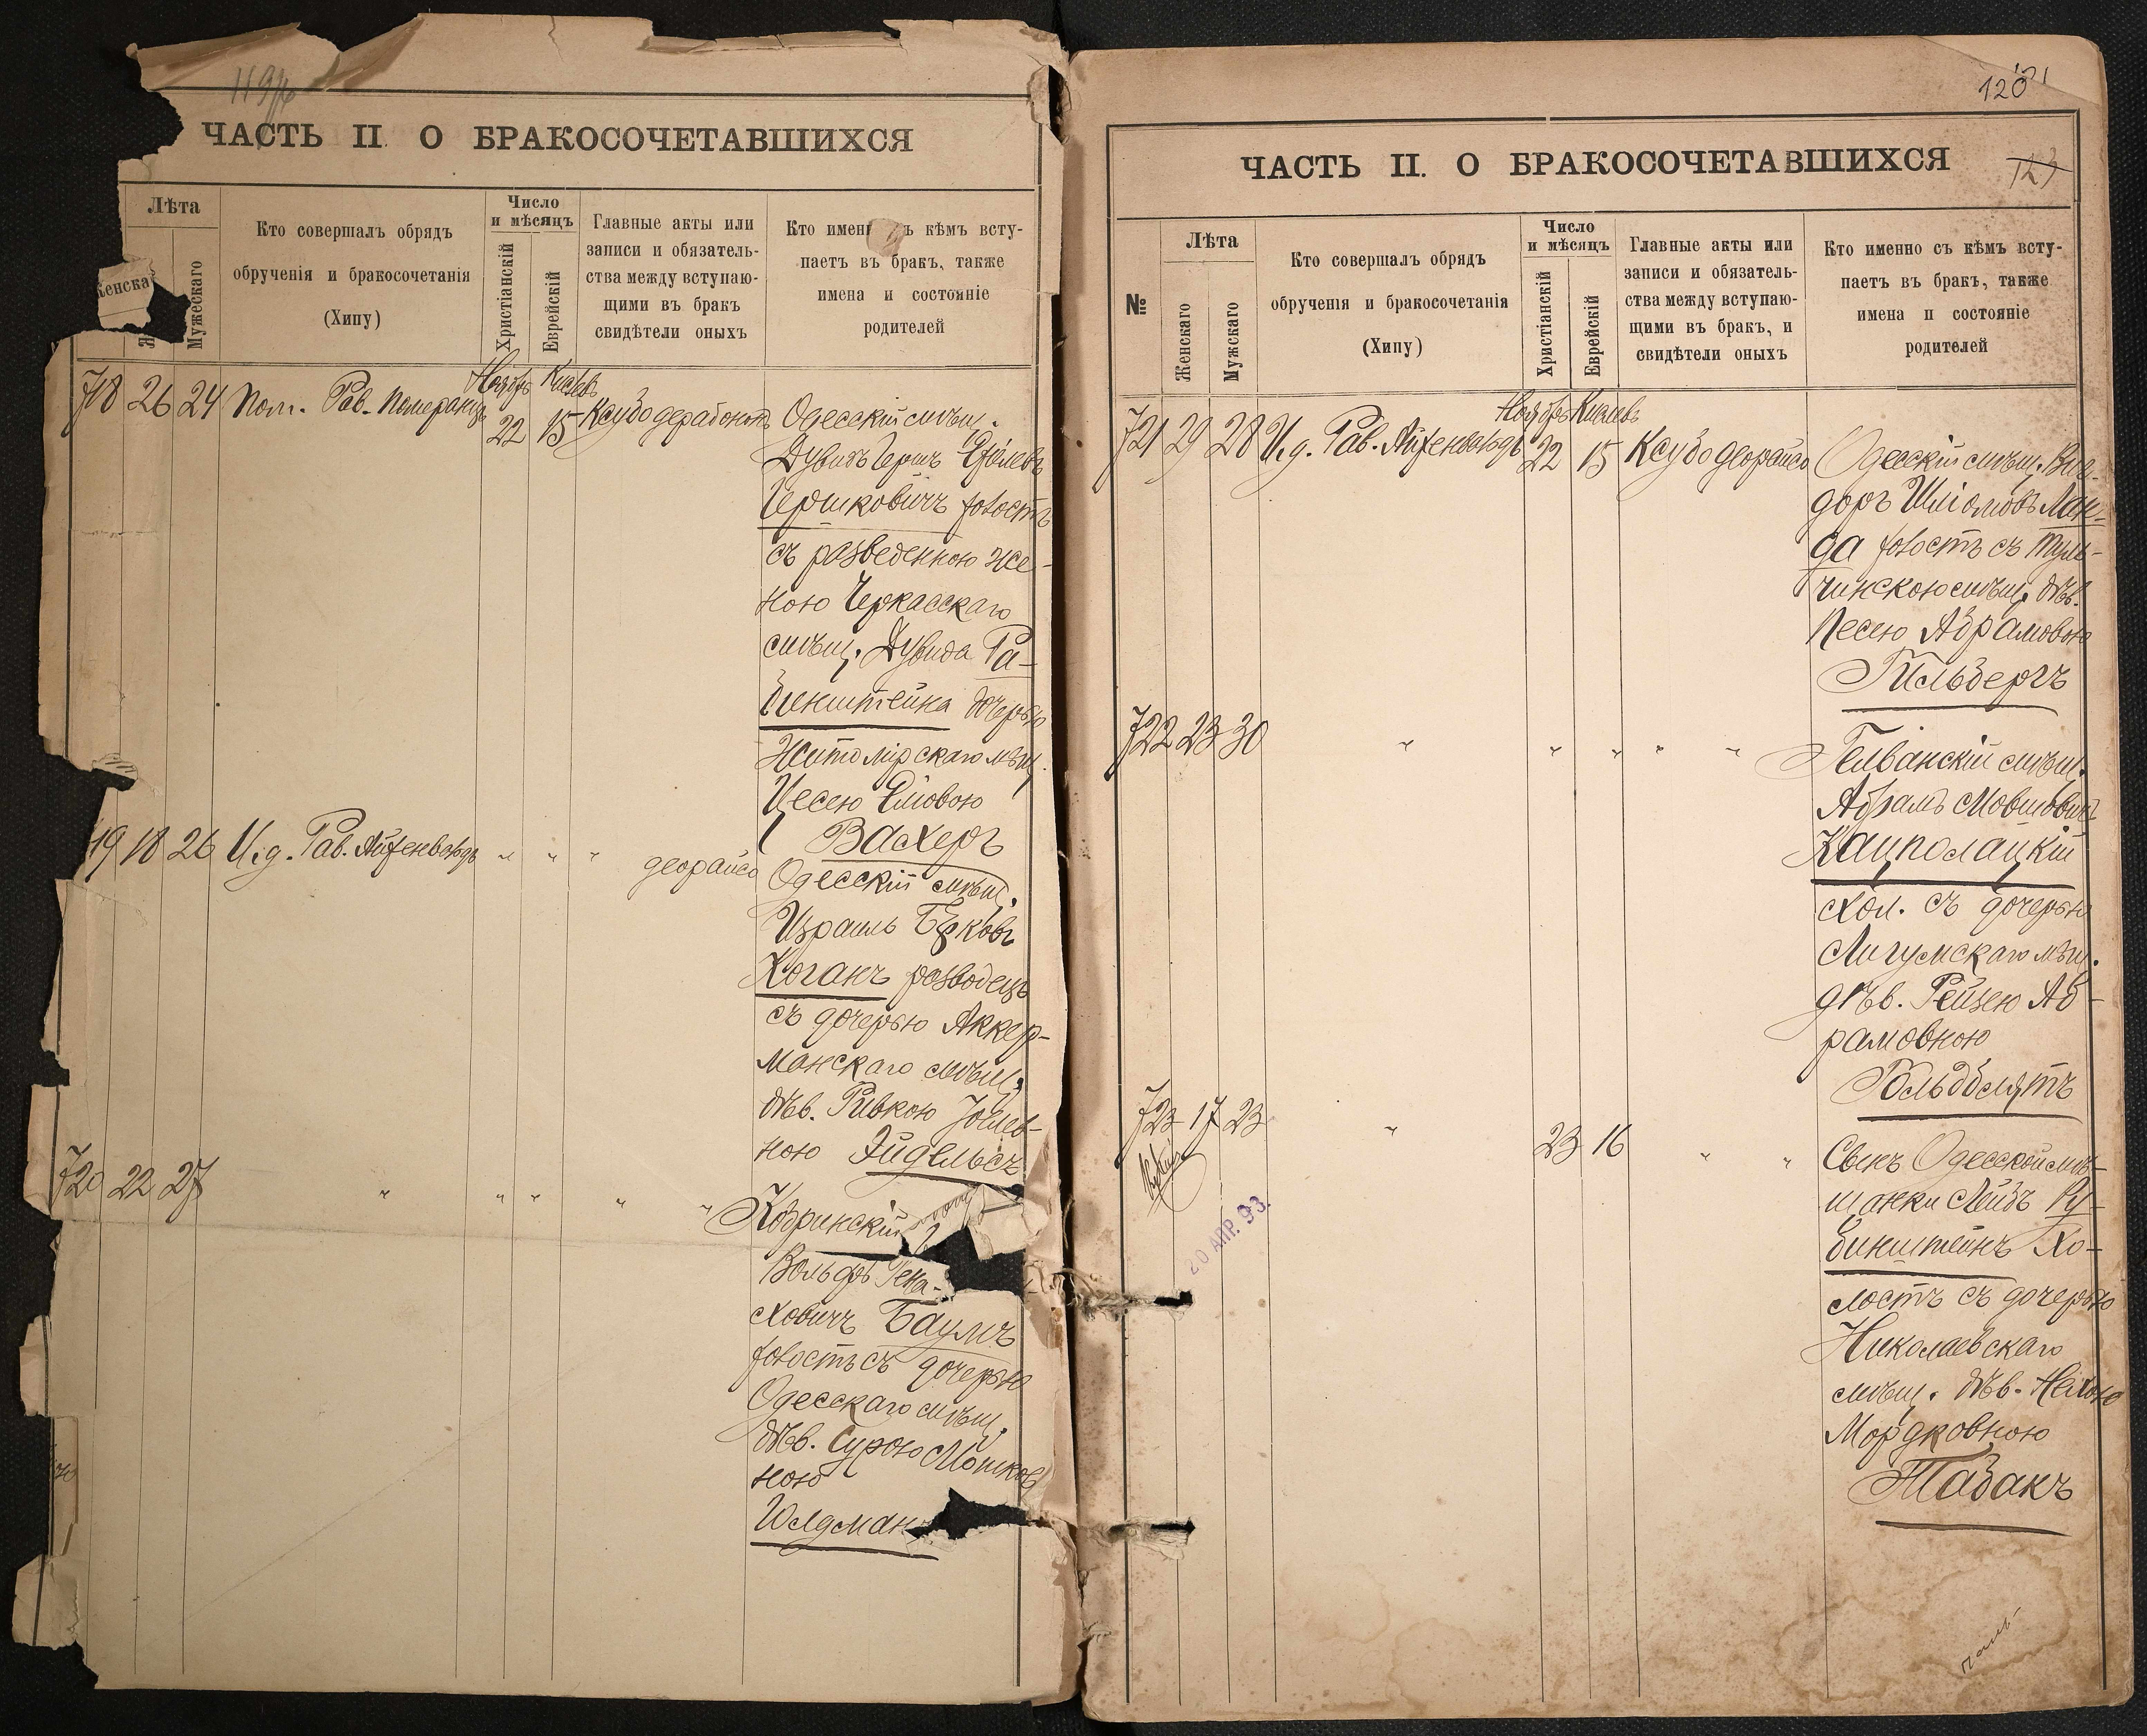 119
ЧАСТЬ II. О БРАКОСОЧЕТАВШИХСЯ
Лѣта
Женска
Мужескаго
Кто совершалъ обрядъ
обрученія и бракосочетанія
(Хипу)
Число
и мѣсяцъ
Христіанскій
Еврейскій
Главные акты или
записи и обязатель-
ства между вступаю-
щими въ бракъ
свидѣтели оныхъ
Кто имен ъ кѣмъ всту-
паетъ въ бракъ, также
имена и состояніе
родителей
Ноябрь Кислевъ
718 26 24 Пом. Рав. Померанцъ 22 15 Ксубо дерабононъ
Одесскій мѣщ.
Дувидъ Гершъ
Гершковичъ холостъ
съ разведенною же-
ною Черкасскаго
мѣщ. Дувида Ра-
бинштейна дочерью
Житомірскаго мѣщ.
Цесею
Вахеръ
19 18 26 И.д. Рав. Айзенвальдъ " " " деорайсо
Одесскій мѣщ.
Израиль Берковъ
Коганъ разводецъ
съ дочерью Аккер-
манскаго мѣщ.
дѣв. Ривкою Іойлев-
ною Эйдельсъ
720 22 27 " " " " "
Кобринскій
Вольфъ Гена-
ховичъ Баумъ
холостъ съ дочерью
Одесскаго мѣщ.
дѣв. Сурою Мошков
ною
Юлдман
120
121
ЧАСТЬ II. О БРАКОСОЧЕТАВШИХСЯ
№
Лѣта
Женскаго
Мужскаго
Кто совершалъ обрядъ
обрученія и бракосочетанія
(Хипу)
Число
и мѣсяцъ
Христіанскій
Еврейскій
Главные акты или
записи и обязатель-
ства между вступаю-
щими въ бракъ, и
свидѣтели оныхъ
Кто именно съ кѣмъ всту-
паетъ въ бракъ, также
имена и состояніе
родителей
Ноябрь Кислевъ
721 29 28 И.д. Рав. Айзенвальдъ 22 15 Ксубо деорайсо
Одесскій мѣщ. Ви-
доръ Шліомовъ Лан-
да холостъ съ Туль-
чинскою мѣщ. дѣв.
Песею Абрамовою
Гильбергъ
722 23 30 " " " " "
Гелванскій мѣщ.
Абрамъ Мовшовичъ
Кацполацкій
хол. съ дочерью
Лигумскаго мѣщ.
дѣв. Рейзею Аб-
рамовною
Гольдблятъ
723 17 23 " 23 16 " "
Сынъ Одесской мѣ-
щанки Лейбъ Ру-
бинштейнъ Хо-
лостъ съ дочерью
Николаевскаго
мѣщ. дѣв. Нехою
Мордковною
Табакъ
20 АПР. 93.